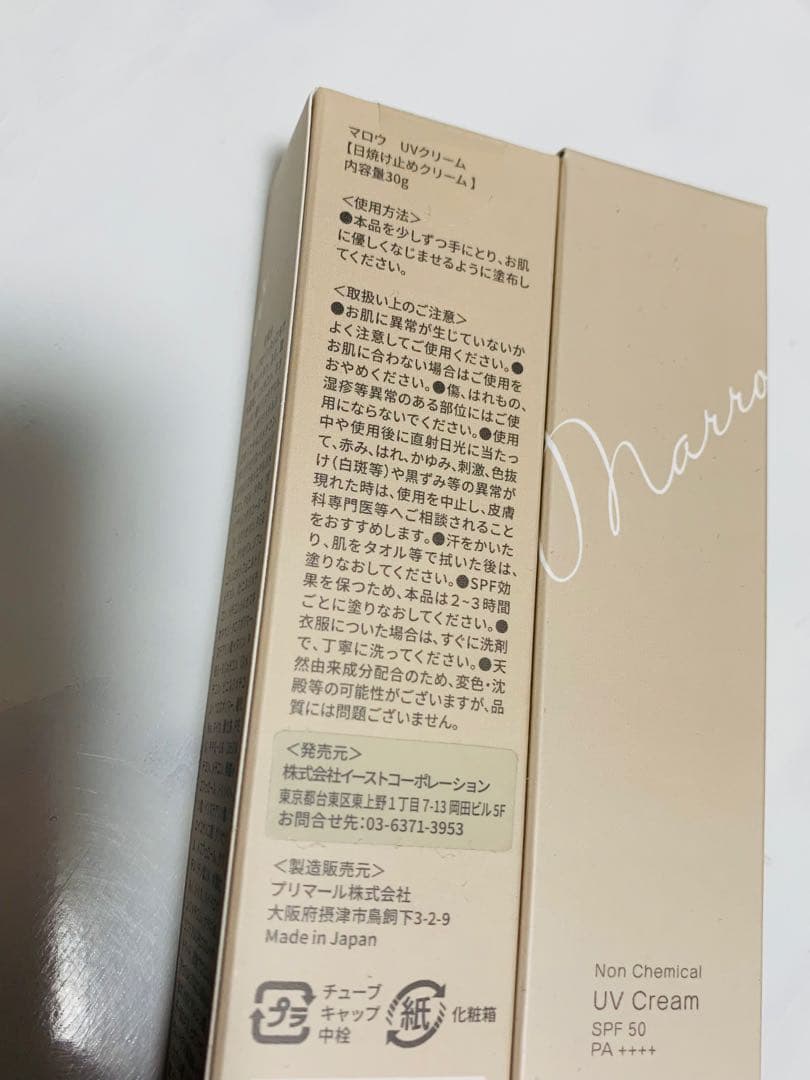 マロウ UVクリーム
【日焼け止めクリーム】
内容量30g
＜使用方法＞
●本品を少しずつ手にとり、お肌
に優しくなじませるように塗布し
てください。
＜取扱い上のご注意＞
●お肌に異常が生じていないか
よく注意してご使用ください。●
お肌に合わない場合はご使用を
おやめください。●傷、はれもの、
湿疹等異常のある部位にはご使
用にならないでください。●使用
中や使用後に直射日光に当たっ
て、赤み、はれ、かゆみ、刺激、色抜
け(白斑等)や黒ずみ等の異常が
現れた時は、使用を中止し、皮膚
科専門医等へご相談されること
をおすすめします。●汗をかいた
り、肌をタオル等で拭いた後は、
塗りなおしてください。●SPF効
果を保つため、本品は2~3時間
ごとに塗りなおしてください。●
衣服についた場合は、すぐに洗剤
で、丁寧に洗ってください。●天
然由来成分配合のため、変色・沈
殿等の可能性がございますが、品
質には問題ございません。
＜発売元＞
株式会社イーストコーポレーション
東京都台東区東上野1丁目7-13 岡田ビル5F
お問合せ先:03-6371-3953
＜製造販売元＞
プリマール株式会社
大阪府摂津市鳥飼下3-2-9
Made in Japan
プラ
チューブ
キャップ
中栓
紙
化粧箱
Marro
Non Chemical
UV Cream
SPF 50
PA ++++